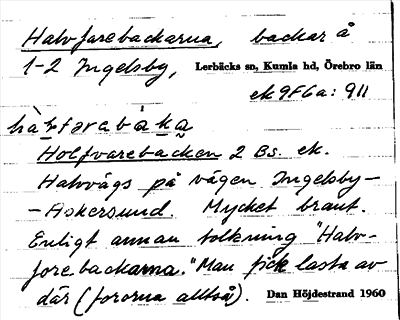 Halvforebackarna, backar å
1-2 Ingelsby, Lerbäcks sn, Kumla hd, Örebro län
ek 9F6a: 911
hàlfǝrebáka
Holfvarebacken 2 Bs. ek.
Halvvägs på vägen Ingelsby-
-Askersund. Mycket brant.
Enligt annan tolkning "Halv-
forebackarna." Man fick lasta av
där (fororna alltså). Dan Höjdestrand 1960